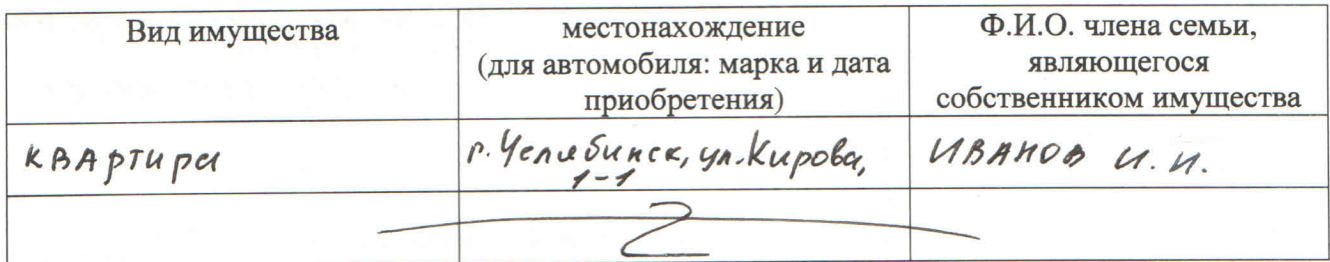 Вид имущества
местонахождение
(для автомобиля: марка и дата
приобретения)
Ф.И.О. члена семьи,
являющегося
собственником имущества
квартира
г. Челябинск, ул. Кирова,
1-1
Иванов И. И.